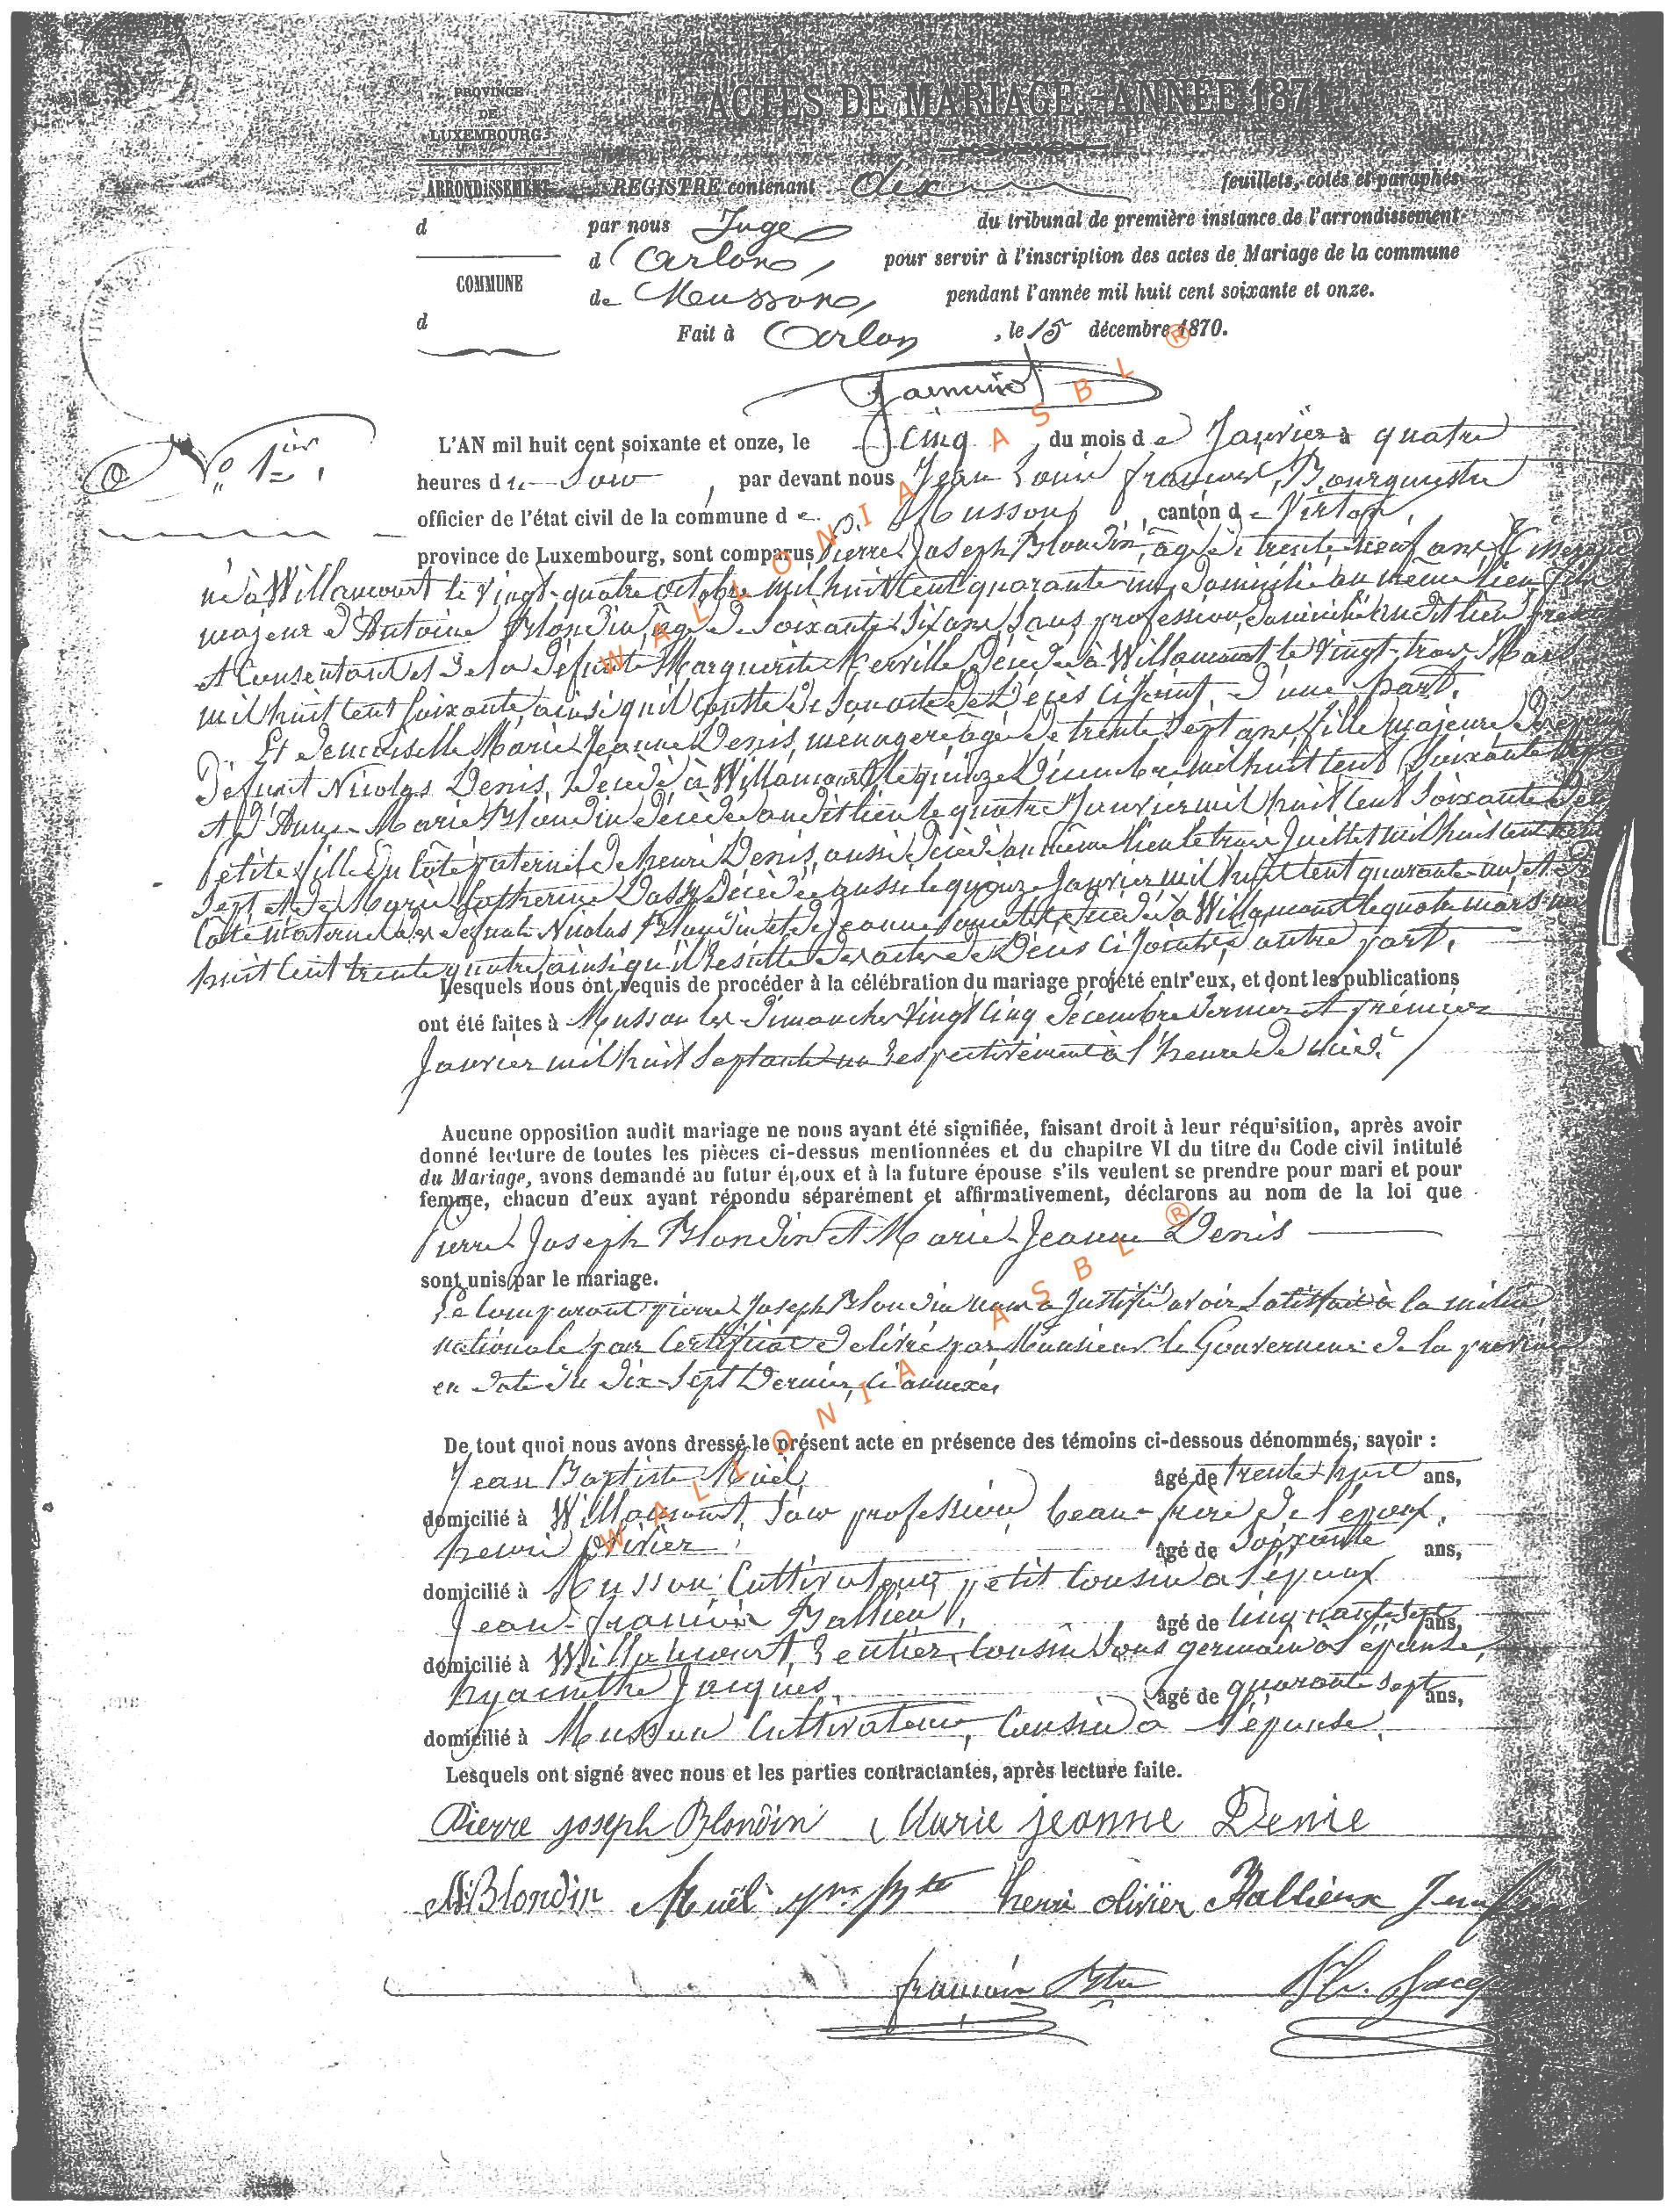 PROVINCE
DE
LUXEMBOURG
ACTES DE MARIAGE.-ANNÉE 1871
ARRONDISSEMENT
REGISTRE contenant dix feuillets, cotés et paraphés
d
par nous Juge du tribunal de première instance de l'arrondissement
d'Arlon, pour servir à l'inscription des actes de Mariage de la commune
COMMUNE
de Musson, pendant l'année mil huit cent soixante et onze.
d
Fait à Arlon, le 15 décembre 1870.
N° 1ier
L'AN mil huit cent soixante et onze, le cinq du mois de Janvier à quatre
heures du Soir, par devant nous Jean Louis françois, Bourgmestre
officier de l'état civil de la commune de Musson, canton de Virton,
province de Luxembourg, sont comparus, Pierre Joseph Blondin, âgé de trente neuf ans
né à Willancourt le vingt-quatre octobre mil huit cent quarante un, domicilié au même lieu, fils
majeur d'Antoine Blondin, âgé de soixante dix ans, sans profession, domicilié audit lieu
et Consentant et de la défunte Marguerite décédée à Willancourt le vingt-trois Mars
mil huit cent soixante, ainsi qu'il Conste de son acte de Décès ci joint, d'une part,
Et demoiselle Marie Jeanne Denis, ménagère âgée de trente sept ans, fille majeure
Défunt Nicolas Denis, Décédé à Willancourt le quinze Décembre mil huit cent soixante
et d'Anne-Marie Blondin décédée audit lieu le quatre Janvier mil huit cent soixante
petite fille du côté paternel de henri Denis, aussi décédé au même lieu le treize Juillet mil huit cent
sept et de Marie Catherine décédée aussi le quinze Janvier mil huit cent quarante-un, et
Côté maternel de défunt Nicolas Blondin et de Jeanne décédée à Willancourt le quatre mars mil
huit Cent trente quatre, ainsi qu'il Résulte des actes de Décès ci joints, d'autre part.
Lesquels nous ont requis de procéder à la célébration du mariage projeté entr'eux, et dont les publications
ont été faites à Musson les Dimanches Vingt Cinq Décembre dernier et premier
Janvier mil huit Septante-un Respectivement à l'heure de midi.
Aucune opposition audit mariage ne nous ayant été signifiée, faisant droit à leur réquisition, après avoir
donné lecture de toutes les pièces ci-dessus mentionnées et du chapitre VI du titre du Code civil intitulé
du Mariage, avons demandé au futur époux et à la future épouse s'ils veulent se prendre pour mari et pour
femme, chacun d'eux ayant répondu séparément et affirmativement, déclarons au nom de la loi que
Pierre Joseph Blondin et Marie Jeanne Denis
sont unis par le mariage.
Le Comparant pierre Joseph Blondin nous a Justifié avoir Satisfait à la milice
nationale par Certificat délivré par Monsieur le Gouverneur de la province
en date du dix-sept Dernier, ci annexé
De tout quoi nous avons dressé le présent acte en présence des témoins ci-dessous dénommés, savoir :
Jean Baptiste Muël âgé de trente huit ans,
domicilié à Willancourt, Sans profession, beau-frère de l'époux,
henri olivier âgé de soixante ans,
domicilié à Musson Cultivateur, petit Cousin à l'époux
Jean-françois Ballieu, âgé de Cinquante-sept ans,
domicilié à Willancourt, Rentier, Cousin Sous germain à l'épouse,
hyacinthe Jacques, âgé de quarante sept ans,
domicilié à Musson Cultivateur, Cousin à l'épouse.
Lesquels ont signé avec nous et les parties contractantes, après lecture faite.
Pierre joseph Blondin Marie jeanne Denie
A. Blondin Muël Jn Bte henri olivier Ballieux
françois Btre H. Jacq
WALLONIA ASBL ®
WALLONIA ASBL ®